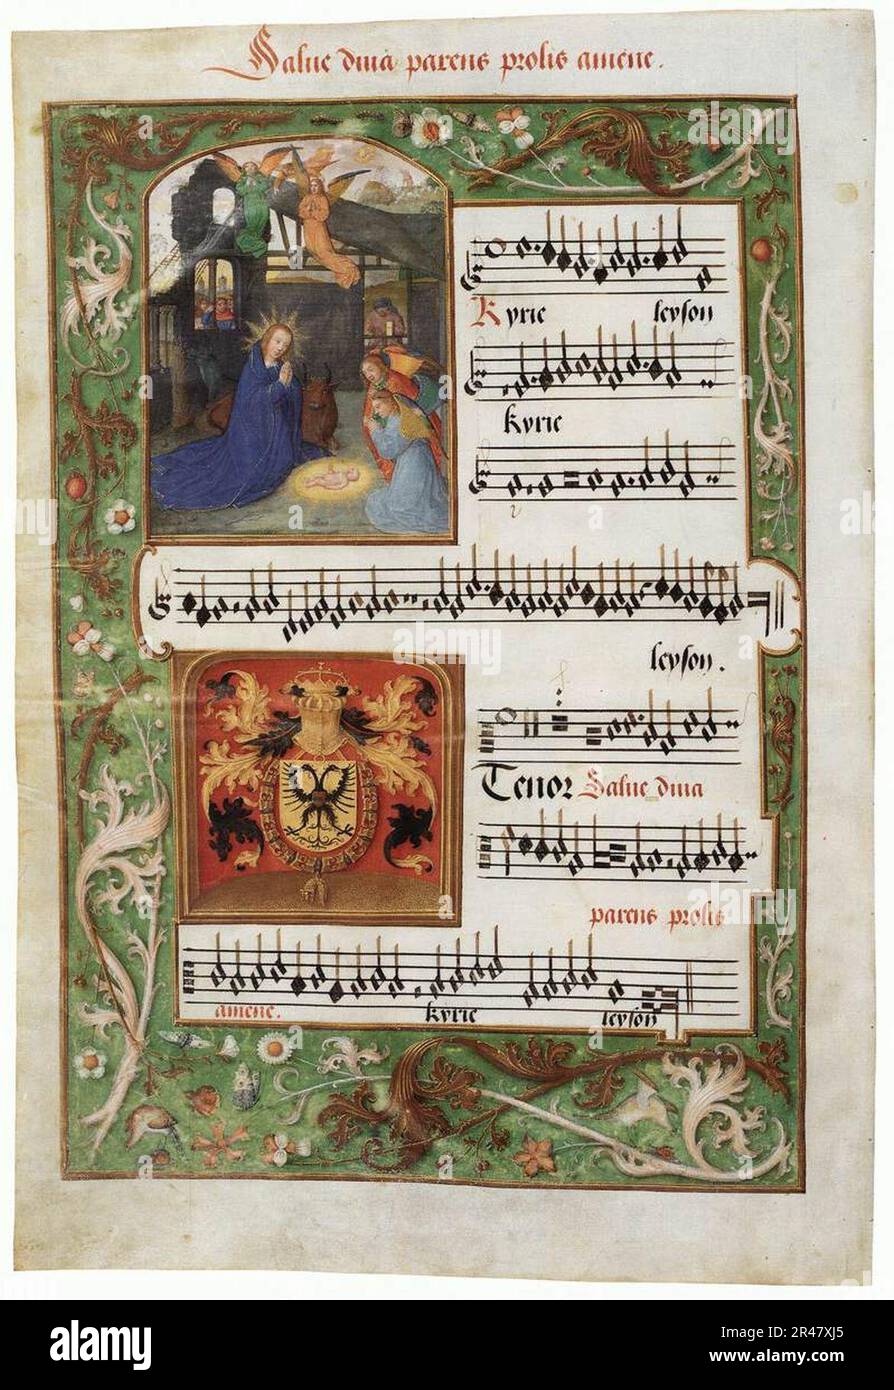 Salue diua parens prolis amene.
Kyrie leyson
kyrie
leyson.
Tenor Salue diua
parens prolis
amene. kyrie leyson
alamy
Image ID: 2R47XJ5
www.alamy.com